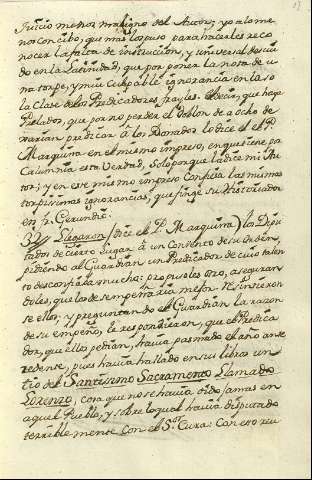 Juicio menos maligno del Autor; yo alome
nos concibo, que mas los puso para hacerles reco
nocer la falta de instrucción, y universal descui
do en la Latinidad, que por poner la nota de u
na torpe, y mui culpable ignorancia en la so
la Clase de los Predicadores frayles. El decir, que haya
Prelados, que por no perder el doblon de a ocho de
narian predicar à los Donados lo dice el P.
Marquina en el mismo impreso, en que tiene por
Calumnia esta verdad, solo porque la dice mi Au
tor; y en ese mismo impreso Confiesa las mismas
torpisimas ignorancias, que finge su Historiador
en fr. Gerundio.
32 Llegaron (dice el P. Marquina) los Dipu
tados de cierto Lugar à un Convento de su Orden,
pidiendo al Guardian un Predicador de cuio talen
to desconfiaba mucho: propusoles otro, aseguran
doles, que los desempeñaria mejor. Resistieron
se ellos; y preguntando el Guardian la razon
de su empeño, le respondieron, que el Predica
dor, que ellos pedian, havia pasmado el año ante
cedente, pues havia hallado en sus libros un
tio del Santissimo Sacramento Llamado
Lorenzo, cosa que no se havia oido jamas en
aquel Pueblo, y sobre lo qual havia disputado
terriblemente con el Sor. Cura: Con eso reu